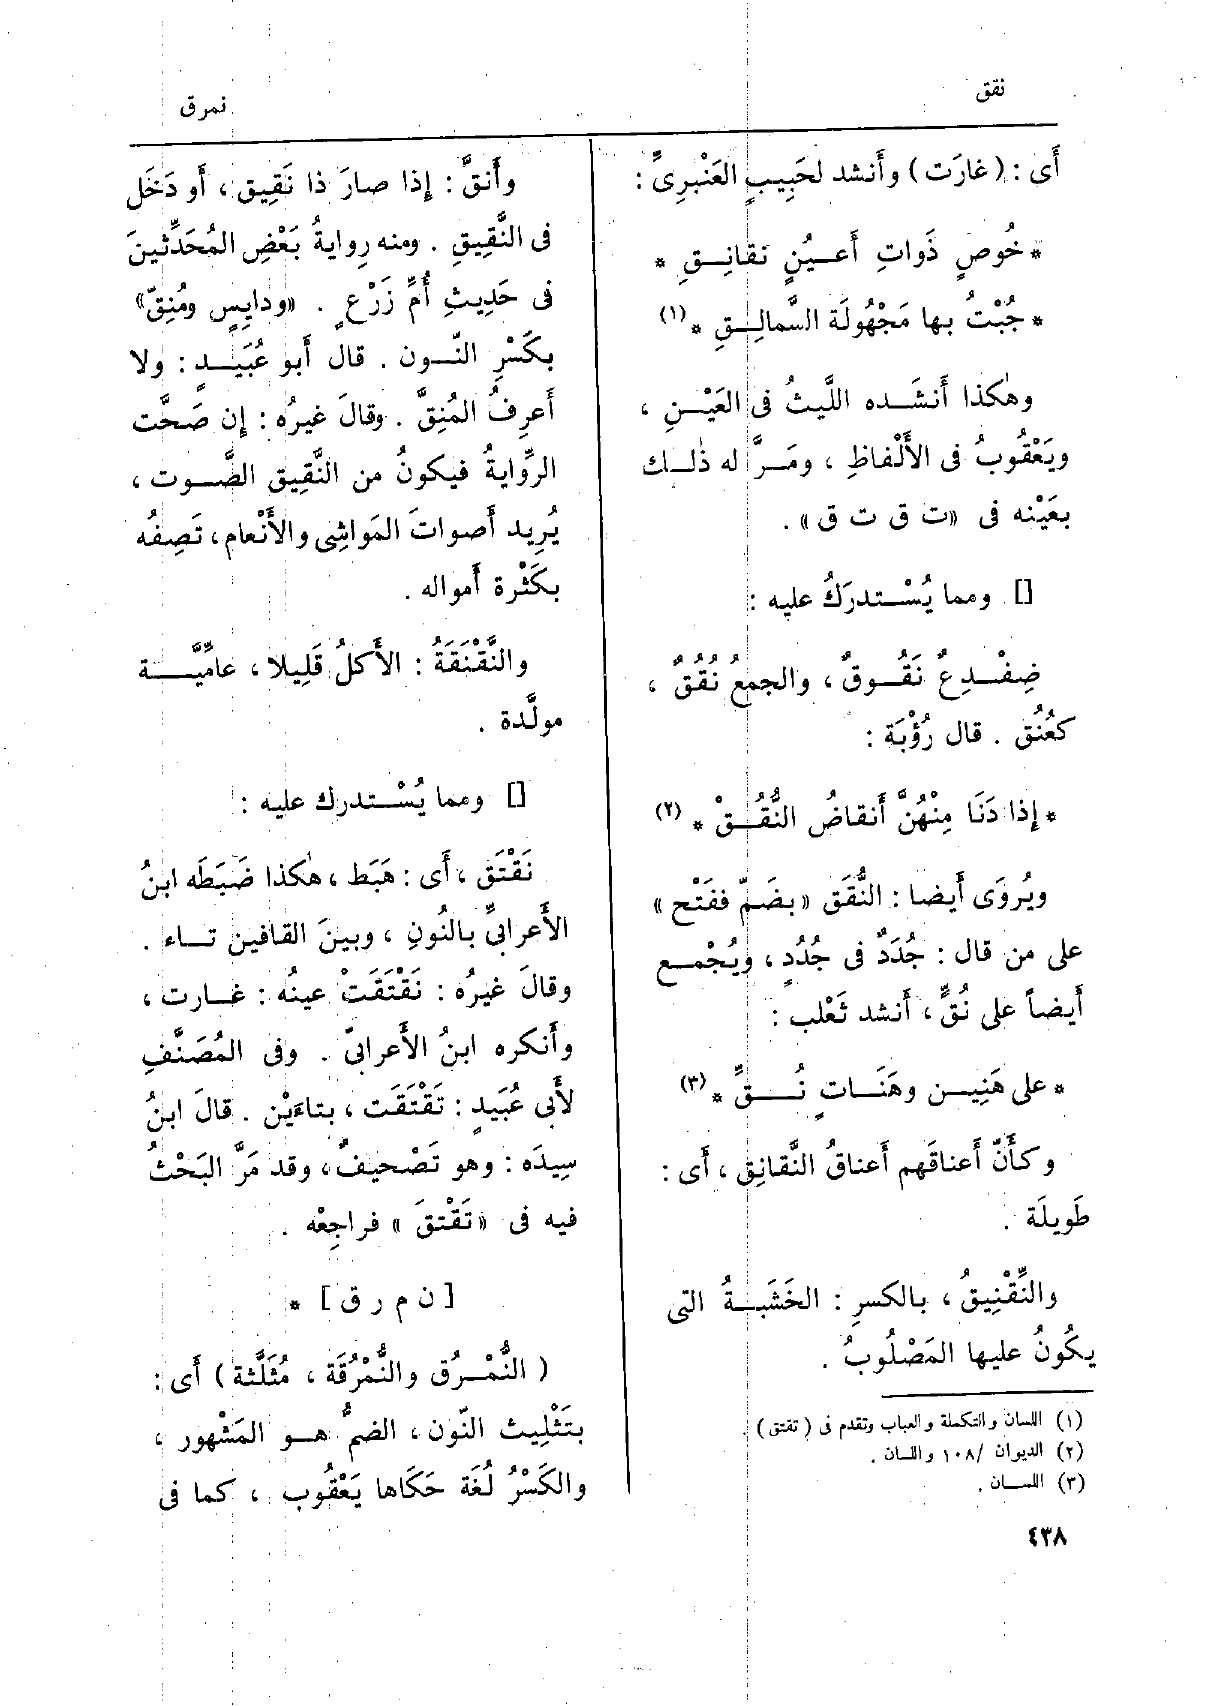 نقق
نمرق
أَى : (غارَت) وأَنشد لحَبِيبٍ العَنْبرِىِّ :
* خُوصٍ ذَواتِ أَعـيُنٍ نقانِـقِ *
* جُبْتُ بها مَجْهُولَةَ السَّمالِـقِ * (١)
وهٰكذا أَنشَـده اللَّيثُ فى العَيْـنِ ،
ويَعْقُوبُ فى الأَلْفاظِ ، ومَـرَّ له ذٰلـك
بعَيْنه فى «ت ق ت ق» .
[] ومما يُسْـتدرَكُ عليه :
ضِفْـدِعٌ نَقُـوقٌ ، والجمعُ نُقُقٌ ،
كعُنُق . قال رُؤْبَة :
* إِذا دَنَا مِنْهُنَّ أَنقاضُ النُّقُـقْ * (٢)
ويُروَى أَيضا : النُّقَق «بضَمّ ففَتْح»
على من قال : جُدَدٌ فى جُدُدٍ ، ويُجْمـع
أَيضاً على نُقٍّ ، أَنشد ثَعْلب :
* على هَنِيـن وهَنَـاتٍ نُـقٍّ * (٣)
وكأَنّ أَعناقَهم أَعناقُ النَّقانِق ، أَى :
طَويلَة .
والنِّقْنِيقُ ، بالكسرِ : الخَشَبـةُ التى
يكُونُ عليها المَصْلُوبُ .
(١) اللسان والتكملة والعباب وتقدم فى (تقتق) .
(٢) الديوان /١٠٨ واللسان .
(٣) اللسـان .
٤٣٨
وأَنقَّ : إِذا صارَ ذا نَقِيق ، أَو دَخَل
فى النَّقِيقِ . ومنه رِوايةُ بَعْضِ المُحَدِّثينَ
فى حَدِيثِ أُمِّ زَرْعٍ . «ودايِسٍ ومُنِقّ»
بكَسْرِ النّـون . قال أَبو عُبَيـدٍ : ولا
أَعرِفُ المُنِقَّ . وقالَ غيرُه : إِن صَحَّت
الرِّوايةُ فيكونُ من النَّقِيق الصَّـوت ،
يُرِيد أَصواتَ المَواشِى والأَنْعام ، تَصِفُه
بكَثْرة أَمواله .
والنَّقْنَقَةُ : الأَكلُ قَلِيلا ، عامِّيَّـة
مولَّدة .
[] ومما يُسْـتدرك عليه :
نَقْتَق ، أَى : هَبَط ، هٰكذا ضَبَطَه ابنُ
الأَعرابىِّ بالنُونِ ، وبينَ القافين تـاء .
وقالَ غيرُه : نَقْتَقَتْ عينُه : غـارت ،
وأَنكره ابنُ الأَعرابىّ . وفى المُصَنَّفِ
لأَبى عُبَيدٍ : تَقْتَقَت ، بتاءَيْن . قالَ ابنُ
سِيدَه : وهو تَصْحيفٌ ، وقد مَرَّ البَحْثُ
فيه فى «تَقْتقَ» فراجِعْه .
[ن م ر ق] *
(النُّمْـرُق والنُّمْرُقَة ، مُثَلَّثة) أَى :
بتَثْلِيث النّون ، الضمُّ هـو المَشْهور ،
والكَسْرُ لُغَة حَكَاها يَعْقُوب ، كما فى